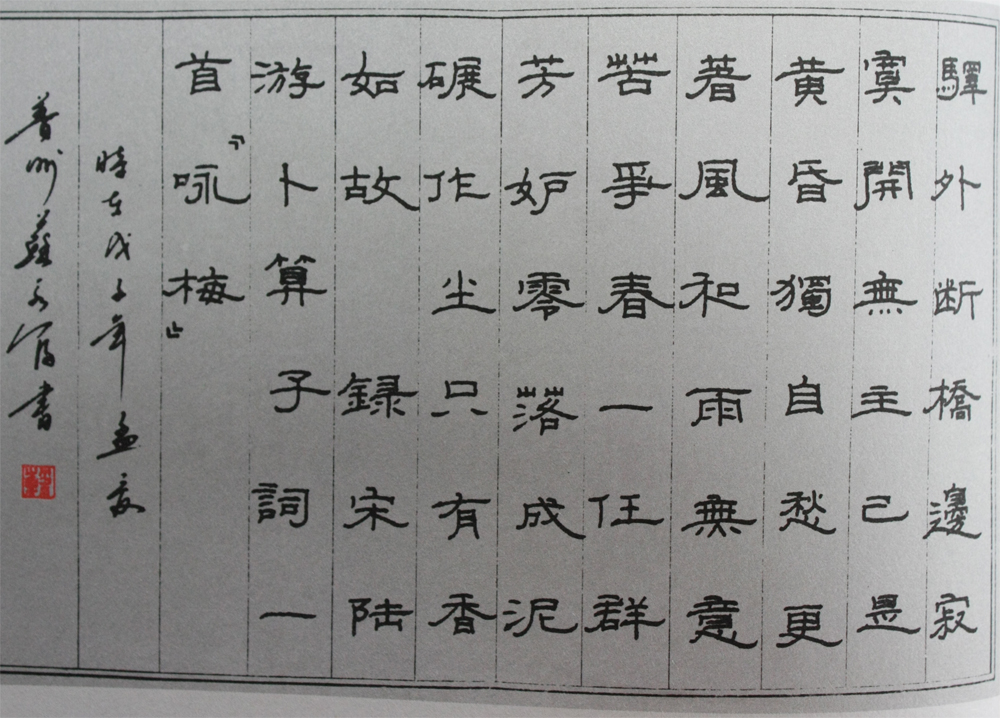 驛外断橋邊寂
寞開無主已是
黄昏獨自愁更
著風和雨無意
苦爭春一任群
芳妒零落成泥
碾作尘只有香
如故 録宋陆
游卜算子詞一
首『咏梅』
時在戊子年孟夏
普州蘇書